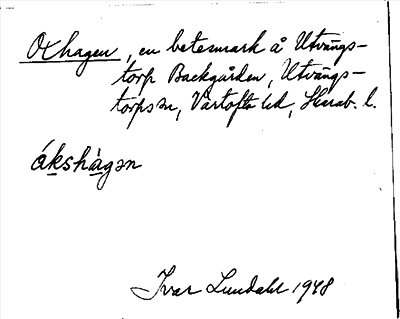 Oxhagen, en betesmark å Utvängs-
torp Backgården, Utvängs-
torps sn, Vartofta hd, Skarab. l.
ákshàgən
Ivar Lundahl 1948